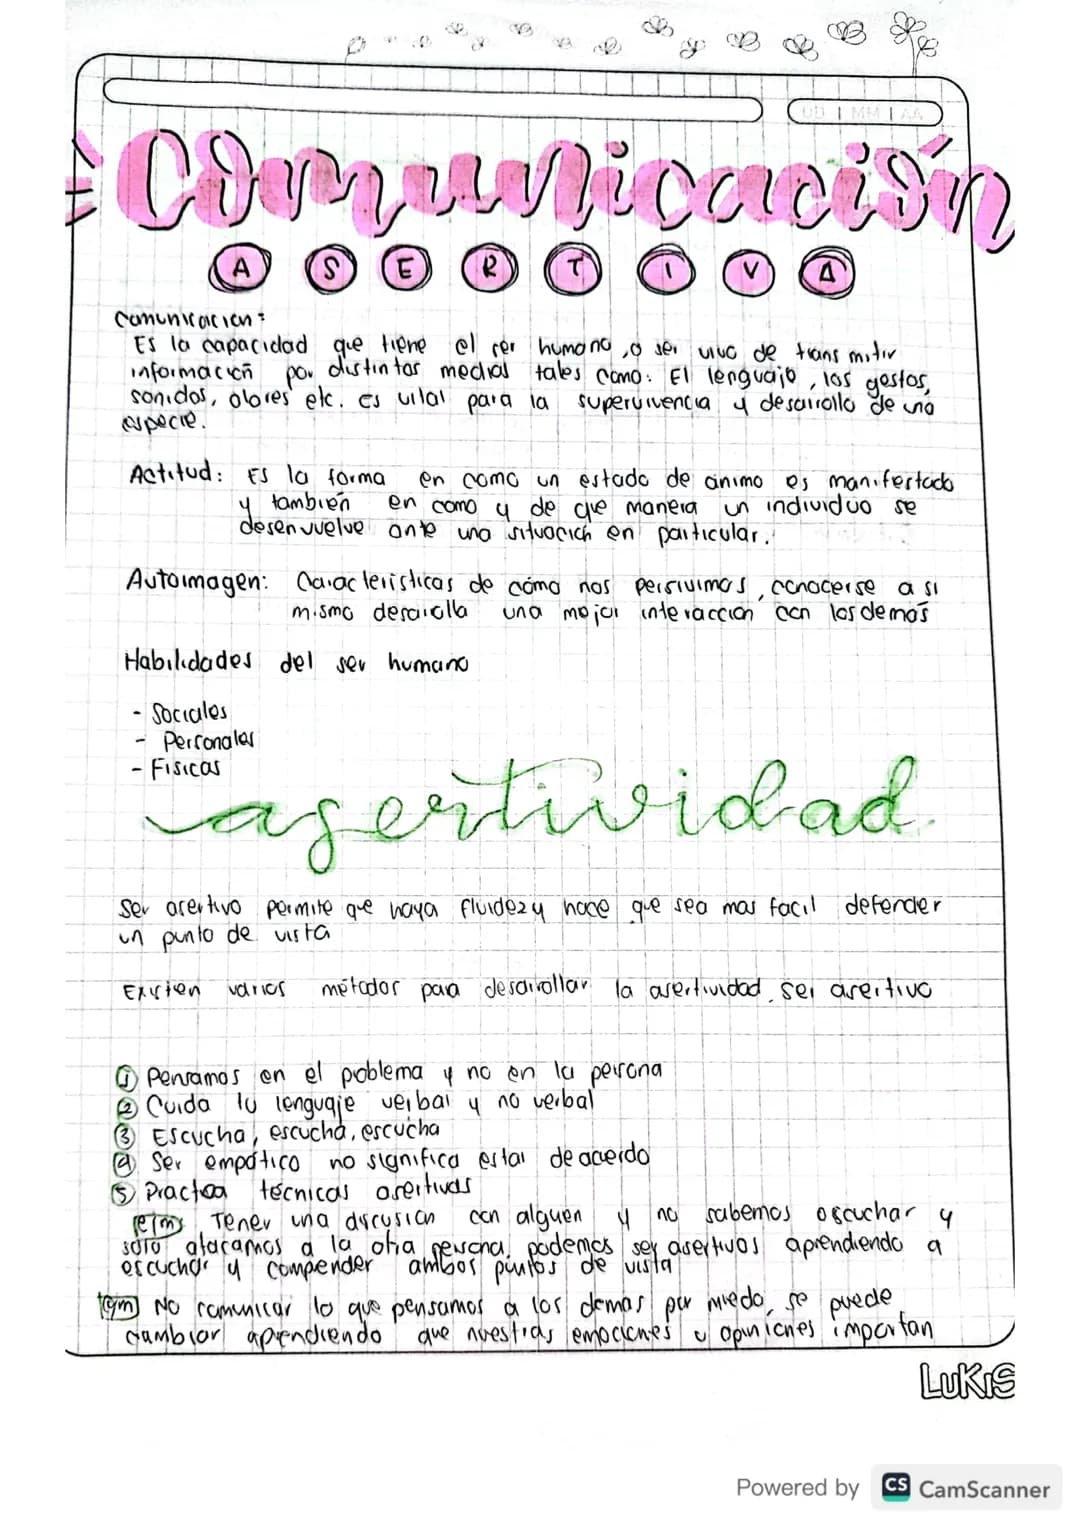 DD | MM | AA
Comunicación
A S E R T I V A
Comunicacion:
Es la capacidad que tiene el ser humano, o ser vivo de transmitir
información por distintas medias tales como: El lenguaje, los gestos,
sonidos, olores etc. Es vital para la supervivencia y desarrollo de una
especie.
Actitud: Es la forma en como un estado de animo es manifestado
y también en como y de que manera un individuo se
desenvuelve ante una situación en particular.
Autoimagen: Caracteristicas de cómo nos persivimos, conocerse a si
mismo desarrolla una mejor interacción con los demás
Habilidades del ser humano
- Sociales
- Personales
- Fisicas
asertividad
Ser asertivo permite que haya fluidez y hace que sea mas facil defender
un punto de vista
Existen varios métodos para desarrollar la asertividad, ser asertivo
① Pensamos en el poblema y no en la persona
② Cuida tu lenguaje verbal y no verbal
③ Escucha, escucha, escucha
④ Ser empático no significa estar de acuerdo
⑤ Practica técnicas asertivas
ejm Tener una discusion con alguen y no sabemos escuchar y
solo atacamos a la otra persona, podemos ser asertivos aprendiendo a
escuchar y compender ambos puntos de vista
ejm No comunicar lo que pensamos a los demas por miedo, se puede
cambiar aprendiendo que nuestras emociones y opiniones importan
LUKIS
Powered by CS CamScanner